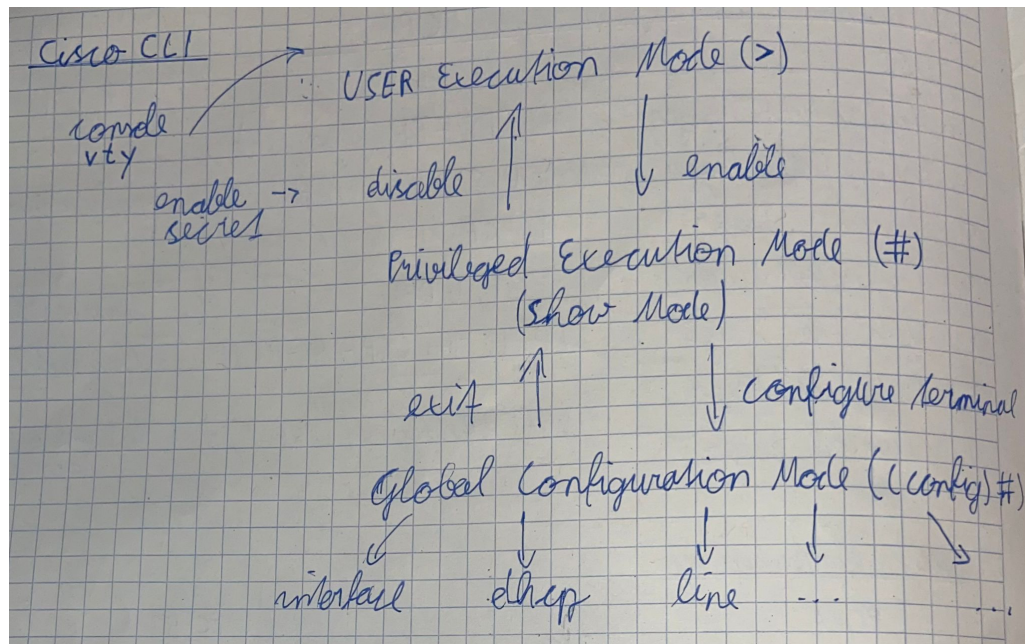 Cisco CLI
USER Execution Mode (>)
console
vty
enable ->
secret
disable
enable
Privileged Execution Mode (#)
(show Mode)
exit
configure terminal
Global Configuration Mode ((config)#)
interface dhcp line ... ...